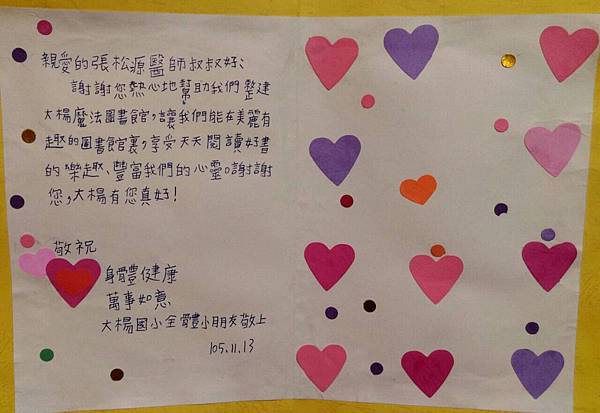 親愛的張松源醫師叔叔好、
謝謝您熱心地幫助我們整建
大楊魔法圖書館，讓我們能在美麗有
趣的圖書館裏，享受天天閱讀好書
的樂趣、豐富我們的心靈。謝謝
您，大楊有您真好！
敬祝
身體健康
萬事如意
大楊國小全體小朋友敬上
105.11.13